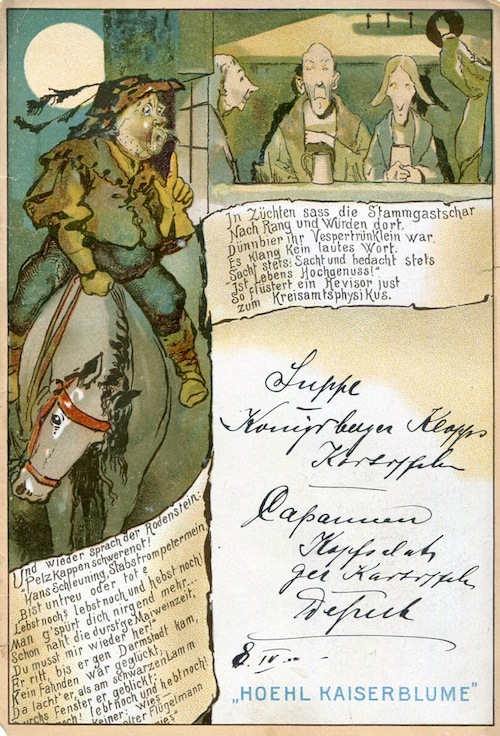 In Züchten sass die Stammgastschar
Nach Rang und Würden dort,
Dünnbier ihr Vespertrünklein war,
Es klang kein lautes Wort.
Sacht stets: Sacht und bedacht stets
"Ist Lebens Hochgenuss!"
So flüstert ein Revisor just
zum Kreisamtsphysikus.
Suppe
Königsberger Klopps
Kartoffeln
Capaunen
Kopfsalat
Kartoffeln
8. IV.
„HOEHL KAISERBLUME"
Und wieder sprach der Rodenstein:
"Pelzkappenschwerenot!
Hans Schleuning, Stabstrompetermein,
Bist untreu oder tot?
Lebst noch? Lebst noch und hebst noch?
Man g'spürt dich nirgend mehr...
Schon naht die durstge Maiweinzeit,
Du musst mir wieder her!
Er ritt, bis er gen Darmstadt kam,
Kein Fahnden war geglückt;
Da lacht' er, als am schwarzen Lamm
Durchs Fenster er geblickt:
lebt noch und hebt noch!
keiner: wies
alter Flügelmann